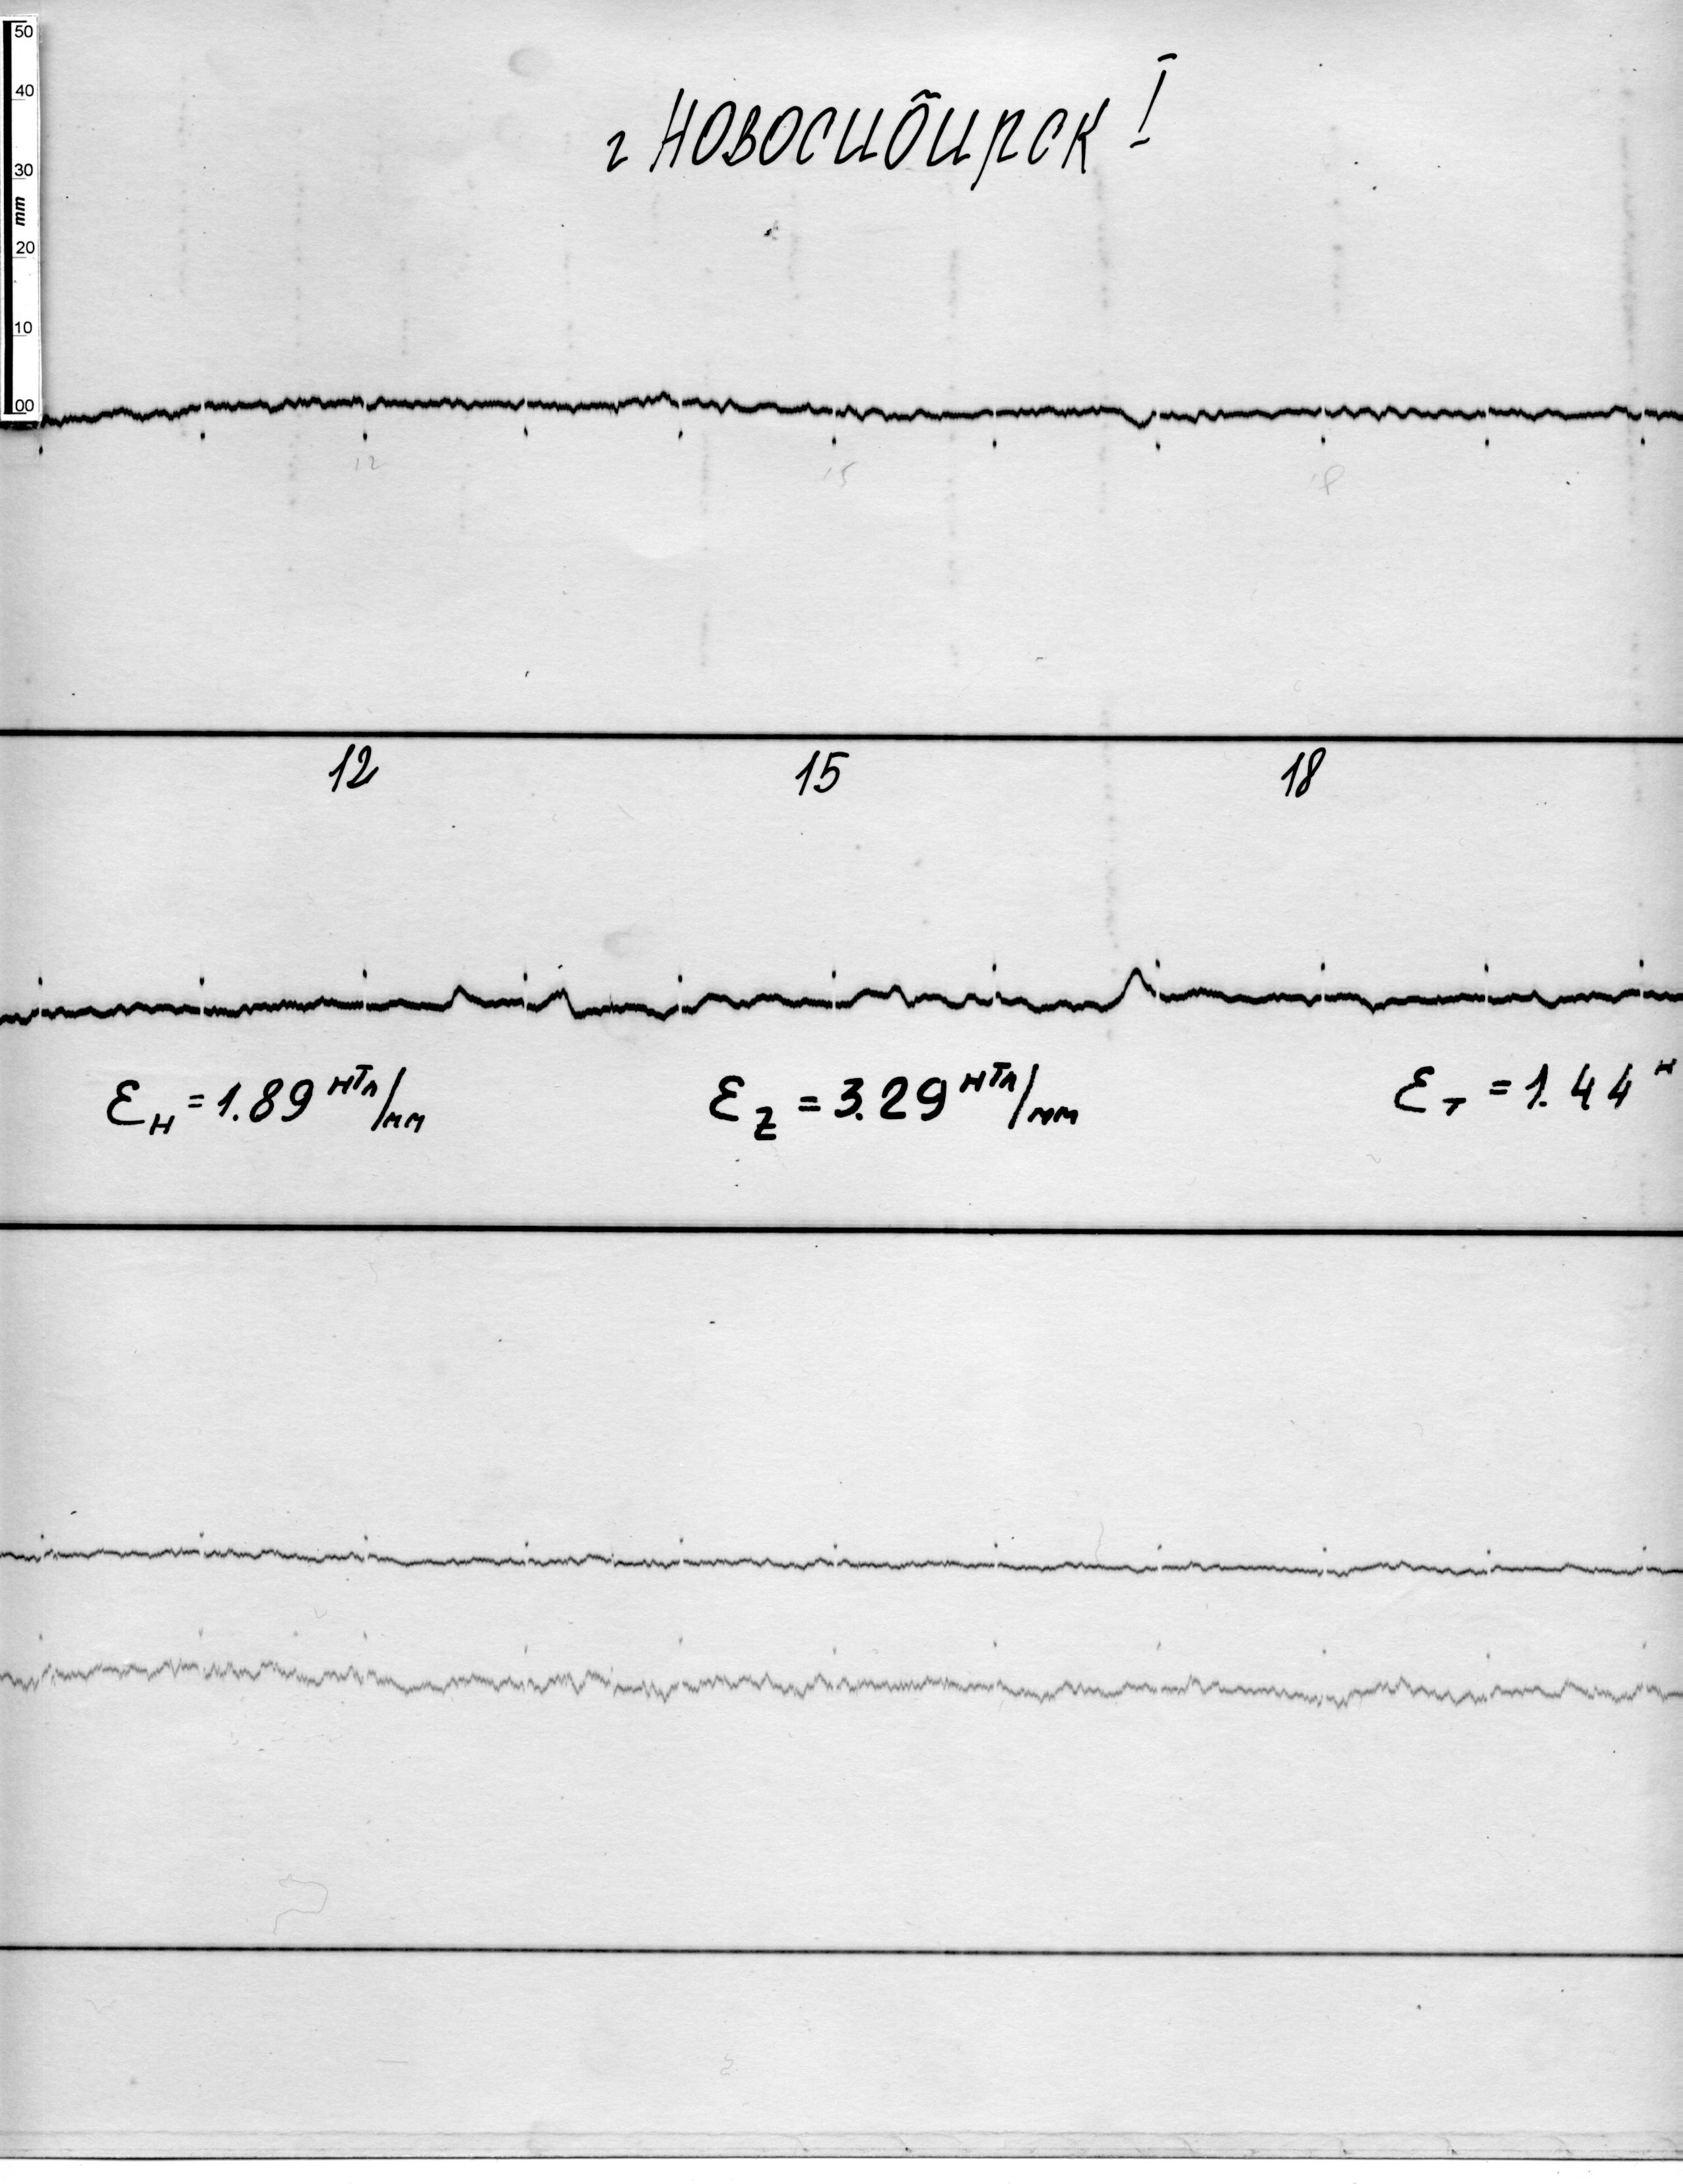 50
40
30
mm
20
10
00
г НОВОСИБИРСК I
12 15 18
12 15 18
εн = 1.89 нТл/мм εz = 3.29 нТл/мм εт = 1.44 н